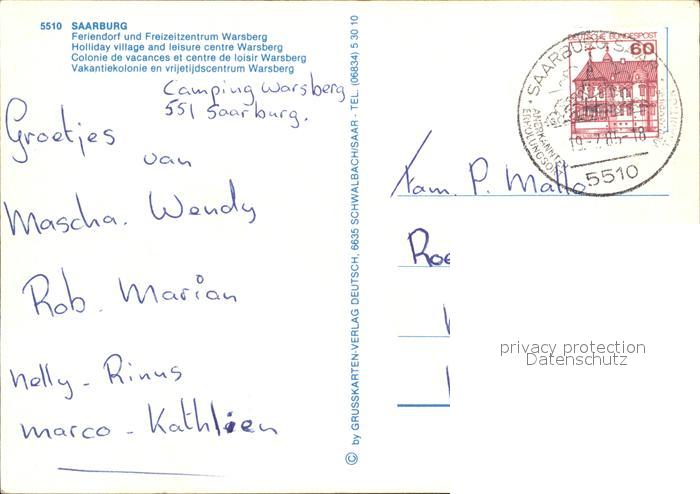 5510 SAARBURG
Feriendorf und Freizeitzentrum Warsberg
Holliday village and leisure centre Warsberg
Colonie de vacances et centre de loisir Warsberg
Vakantiekolonie en vrijetijdscentrum Warsberg
Camping Warsberg
551 Saarburg.
Groetjes
van
Mascha. Wendy
Rob. Marian
Nelly - Rinus
Marco - Kathleen
© by GRUSSKARTEN-VERLAG DEUTSCH, 6635 SCHWALBACH/SAAR - TEL. (06834) 5 30 10
DEUTSCHE BUNDESPOST
60
SAARBURG
5510
Fam. P. Mallo
privacy protection
Datenschutz